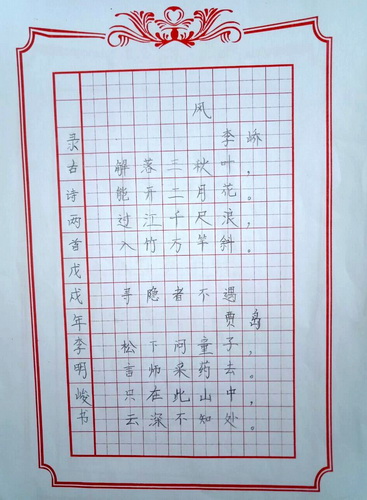 风
李峤
解落三秋叶，
能开二月花。
过江千尺浪，
入竹万竿斜。
寻隐者不遇
贾岛
松下问童子，
言师采药去。
只在此山中，
云深不知处。
录古诗两首戊戌年李明峻书